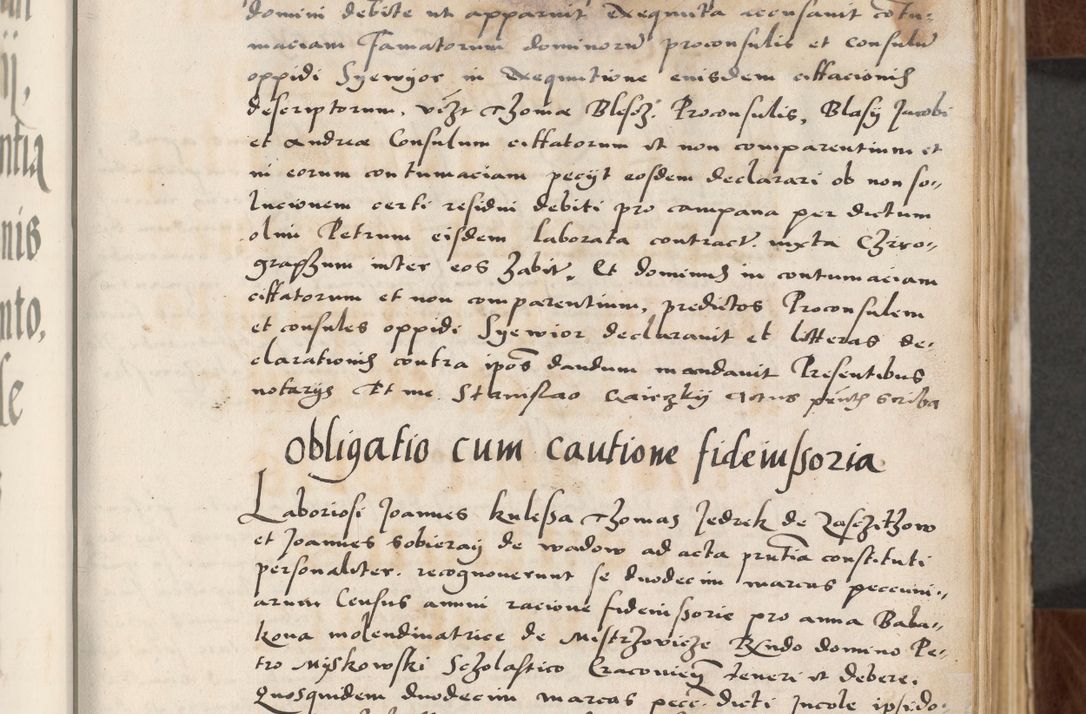 domini debite ut apparuit Exequuta accusavit cotu-
maciam Famatorum dominorū proconsulis et consulū
oppidi Syewyor in Exequutione eiusdem cittacionis
descriptorum. vizt Thomæ Proconsulis, Blasÿ Jacobi
et Andreæ Consulum cittatorum et non comparentium et
in eorum contumaciam pecÿt eosdem declarari ob non so-
lucionem certi residui debiti pro campana per dictum
olim Petrum eisdem laborata contract. iuxta Chiro-
graphum inter eos habit. Et dominus in contumaciam
cittatorum et non comparentium, predictos Proconsulem
et consules oppidi Syewior declaravit et litteras de-
clarationis contra ipos dandum mandavit Presentibus
notarijs Et me. Stanislao actus scriba
obligatio cum cautione fideiussoria
Laboriosi Joannes Kulessa Thomas Jedrek de
et Joannes Sobieraÿ de wadow ad acta prntia constituti
personaliter. recognoverunt se duodecim marcas peccuni-
arum Census annui racione fideiussorie pro anna Baba-
kova molendinatrice de Mistrzovicze Rndo domino Pe-
tro Myskowski Scholastico Cracovien teneri et debere.
Quosquidem duodecim marcas pecc. dicti Incole ipsido-